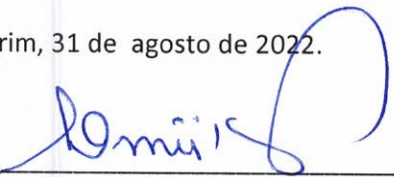 rim, 31 de agosto de 2022.